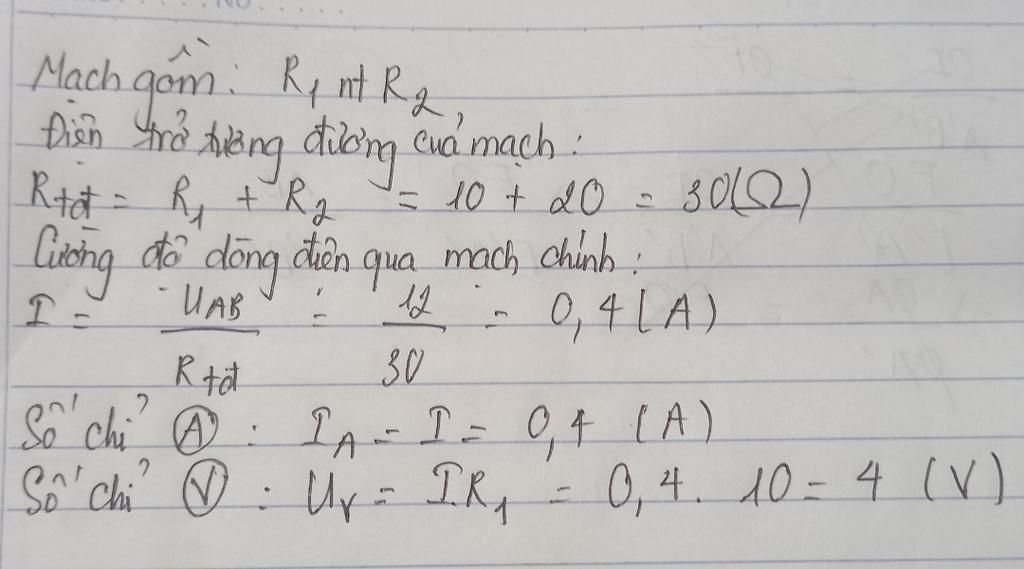 Mạch gồm: R₁ nt R₂
Điện trở tương đương của mạch:
Rtđ = R₁ + R₂ = 10 + 20 = 30(Ω)
Cường độ dòng điện qua mạch chính:
I = UAB / Rtđ = 12 / 30 = 0,4(A)
Số chỉ Ⓐ : IA = I = 0,4 (A)
Số chỉ Ⓥ : UV = IR₁ = 0,4. 10 = 4 (V)